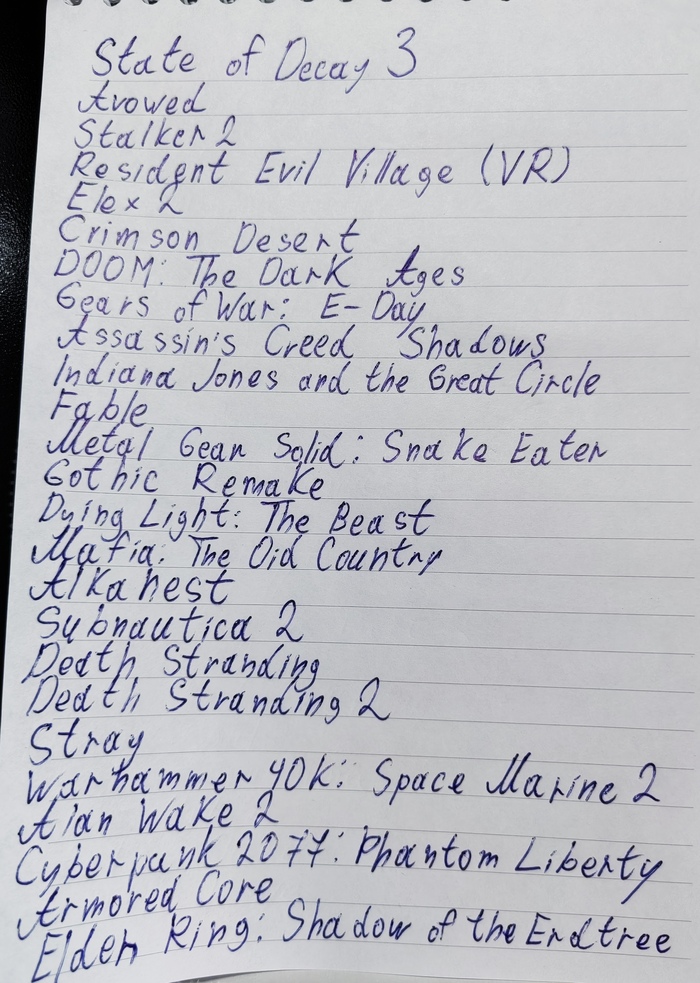 State of Decay 3
Avowed
Stalker 2
Resident Evil Village (VR)
Elex 2
Crimson Desert
DOOM: The Dark Ages
Gears of War: E-Day
Assassin's Creed Shadows
Indiana Jones and the Great Circle
Fable
Metal Gear Solid: Snake Eater
Gothic Remake
Dying Light: The Beast
Mafia: The Old Country
Alkahest
Subnautica 2
Death Stranding
Death Stranding 2
Stray
Warhammer 40K: Space Marine 2
Alan Wake 2
Cyberpunk 2077: Phantom Liberty
Armored Core
Elden Ring: Shadow of the Erdtree